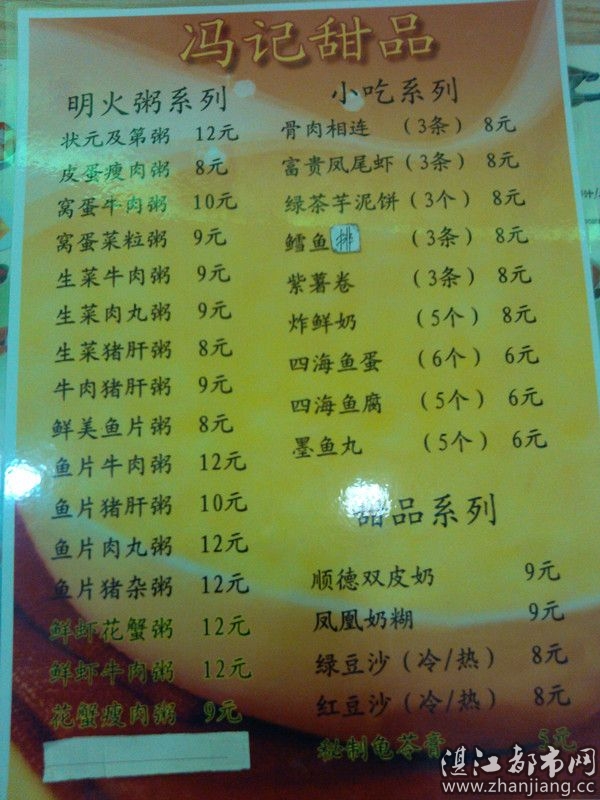 冯记甜品
明火粥系列
状元及第粥 12元
皮蛋瘦肉粥 8元
窝蛋牛肉粥 10元
窝蛋菜粒粥 9元
生菜牛肉粥 9元
生菜肉丸粥 9元
生菜猪肝粥 8元
牛肉猪肝粥 9元
鲜美鱼片粥 8元
鱼片牛肉粥 12元
鱼片猪肝粥 10元
鱼片肉丸粥 12元
鱼片猪杂粥 12元
鲜虾花蟹粥 12元
鲜虾牛肉粥 12元
花蟹瘦肉粥 9元
小吃系列
骨肉相连 (3条) 8元
富贵凤尾虾 (3条) 8元
绿茶芋泥饼 (3个) 8元
鳕鱼排 (3条) 8元
紫薯卷 (3条) 8元
炸鲜奶 (5个) 8元
四海鱼蛋 (6个) 6元
四海鱼腐 (5个) 6元
墨鱼丸 (5个) 6元
甜品系列
顺德双皮奶 9元
凤凰奶糊 9元
绿豆沙(冷/热) 8元
红豆沙(冷/热) 8元
秘制龟苓膏 5元
湛江都市网
www.zhanjiang.cc